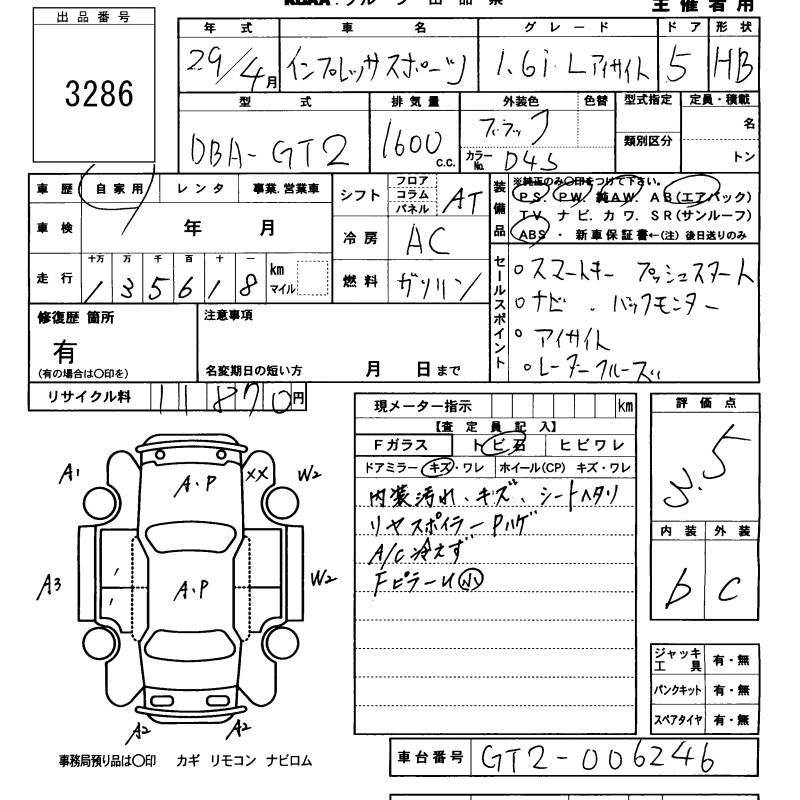 出品番号
3286
主催者用
年式 車名 グレード ドア 形状
29/4月 インプレッサスポーツ 1.6i-Lアイサイト 5 HB
型式 排気量 外装色 色替 型式指定 定員・積載
DBA-GT2 1600 c.c. カラーNo. D4S 類別区分 名
トン
車歴 自家用 レンタ 事業.営業車
車検 年 月
走行 十万 万 千 百 十 一 km マイル
135618
シフト フロア コラム パネル AT
冷房 AC
燃料 ガソリン
装備品 ※純正のみ○印をつけて下さい。
PS. PW. 純AW. AB(エアバック)
TV. ナビ. カワ. SR(サンルーフ)
ABS ・ 新車保証書←(注) 後日送りのみ
セールスポイント
○スマートキー プッシュスタート
○ナビ . バックモニター
○アイサイト
○レーダークルーズ
修復歴 箇所
有
(有の場合は○印を)
注意事項
名変期日の短い方 月 日まで
リサイクル料 11870円
現メーター指示 km
【査定員記入】
Fガラス トビ石 ヒビワレ
ドアミラー キズ・ワレ ホイール(CP) キズ・ワレ
内装汚れ、キズ、シートヘタリ
リヤスポイラーPハゲ
A/C冷えず
FピラーU小
評価点
3.5
内装 外装
b C
ジャッキ工具 有・無
パンクキット 有・無
スペアタイヤ 有・無
A1 A・P XX W2
A3 A・P W2
A2 A2
事務局預り品は○印 カギ リモコン ナビロム
車台番号 GT2-006246